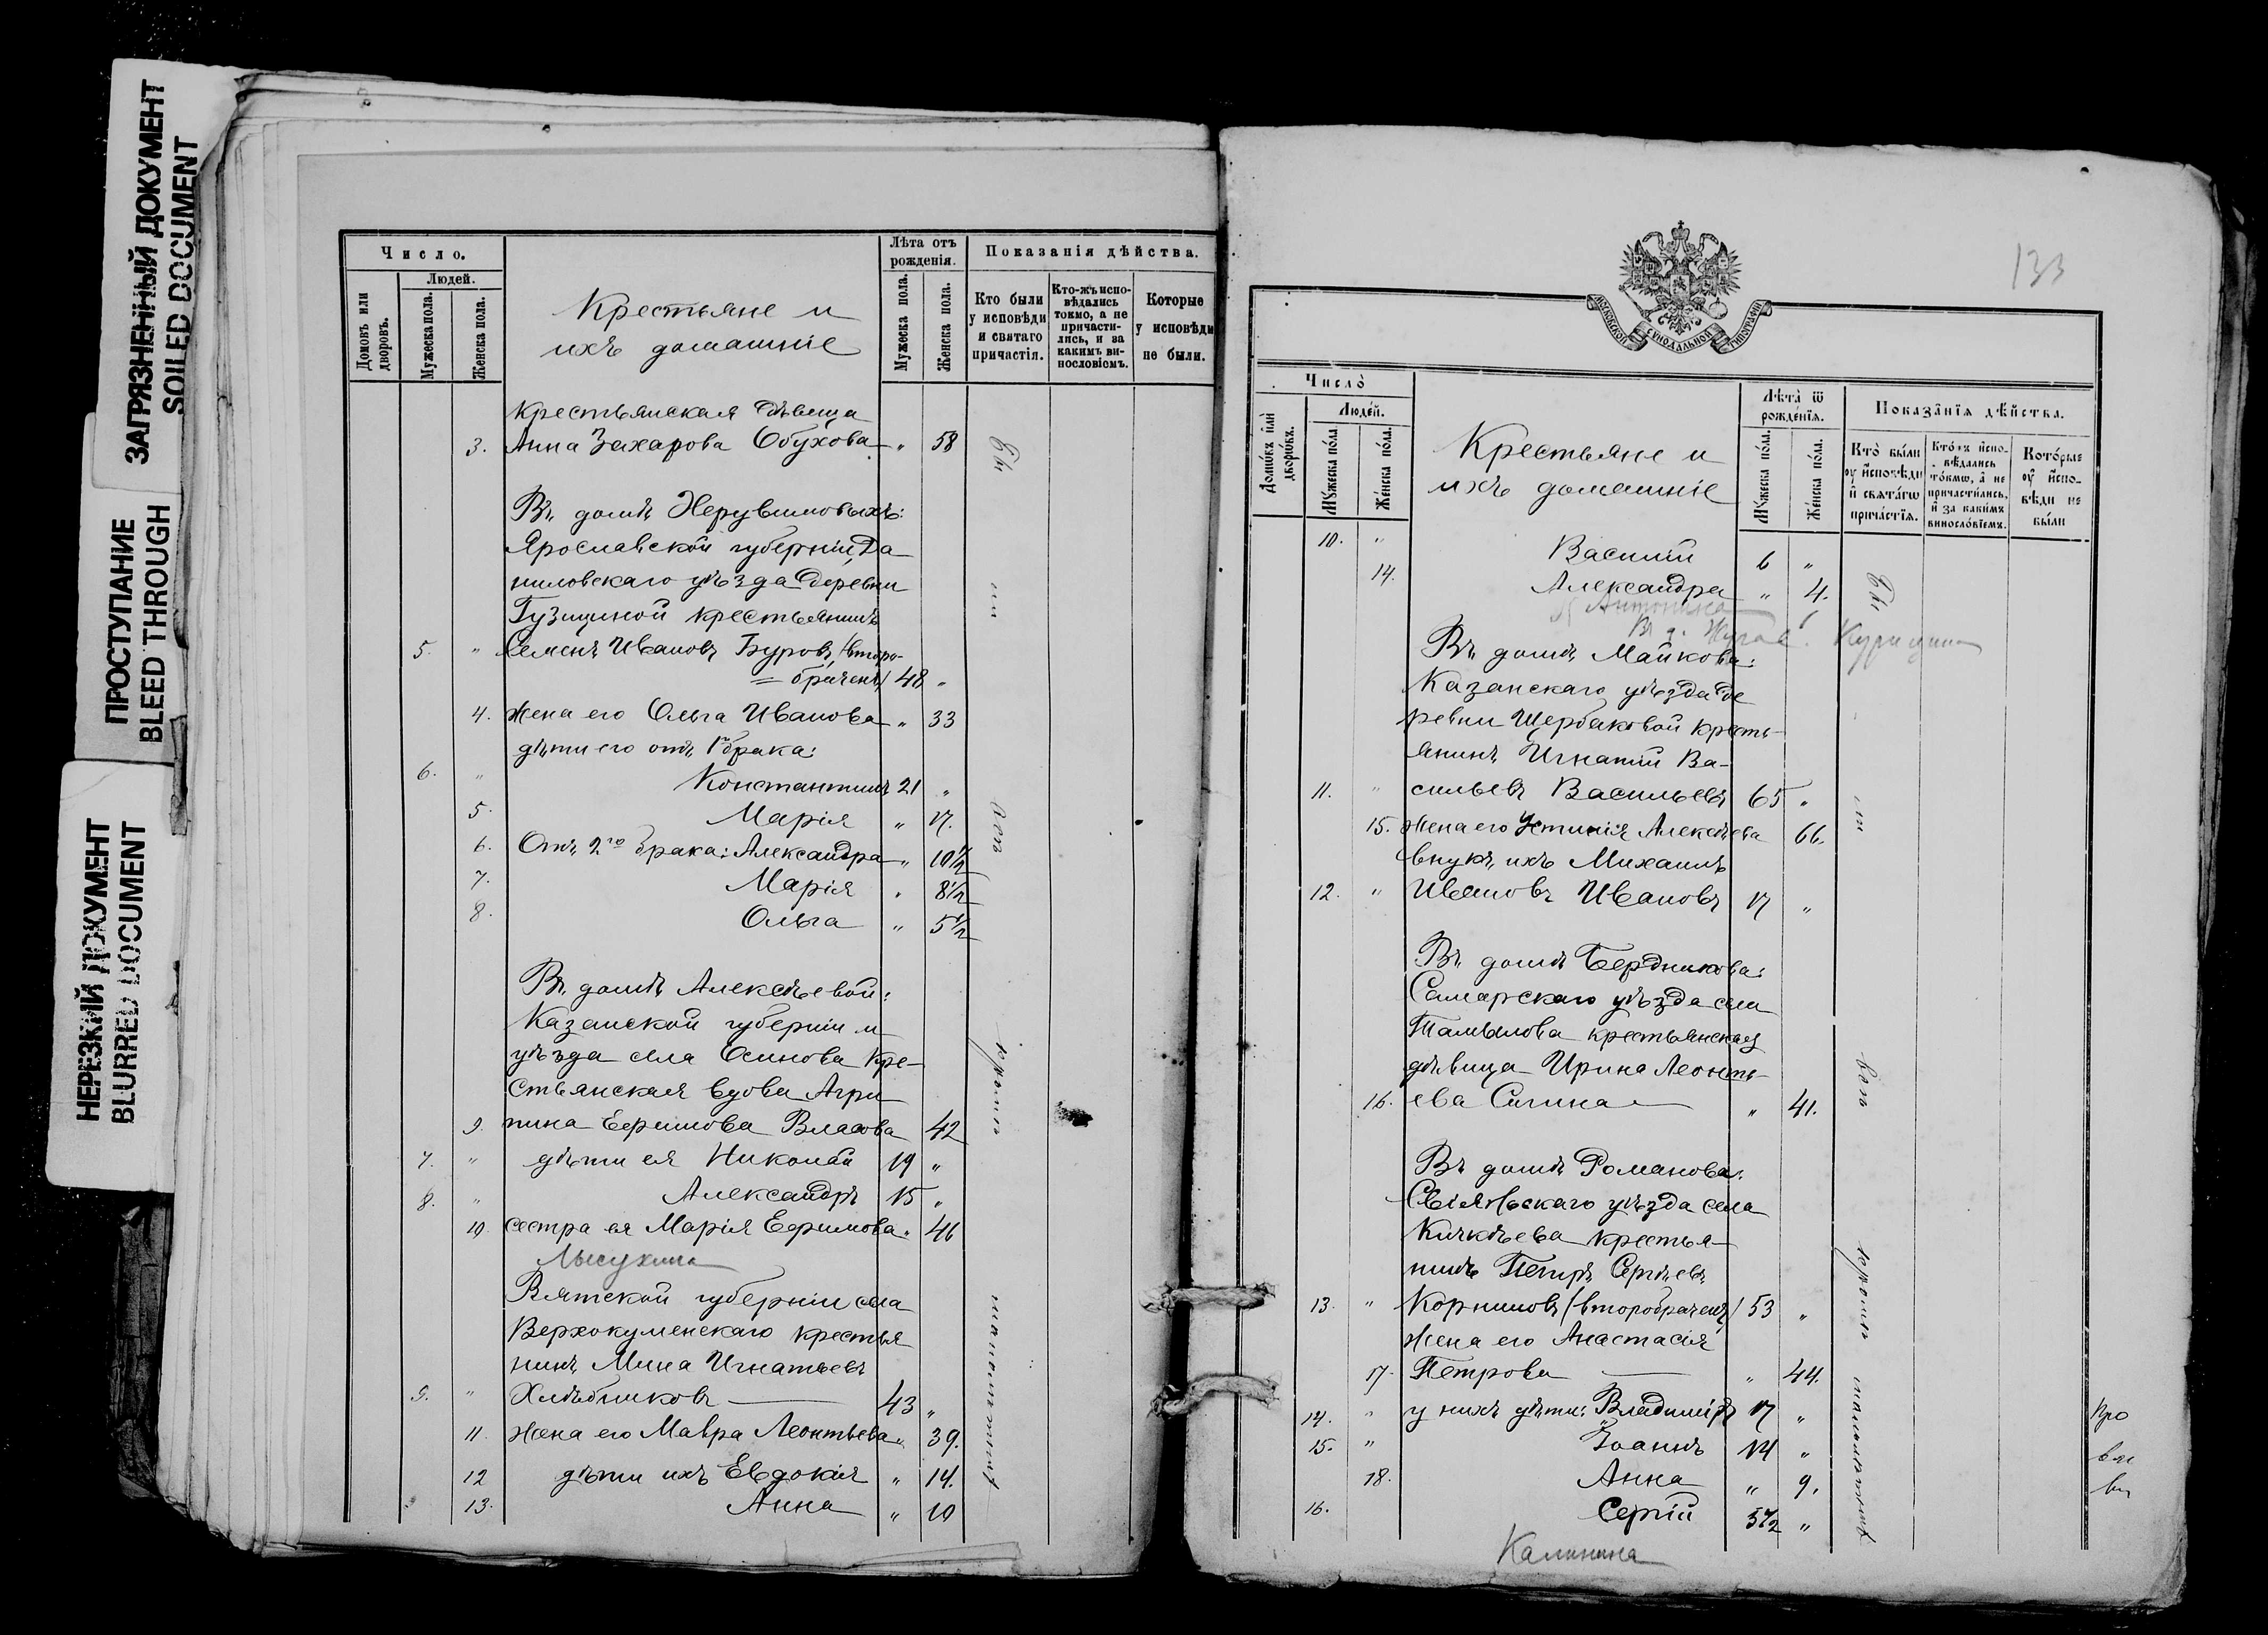 ЗАГРЯЗНЕННЫЙ ДОКУМЕНТ
SOILED DOCUMENT
ПРОСТУПАНИЕ
BLEED THROUGH
НЕРЕЗКИЙ ДОКУМЕНТ
BLURRED DOCUMENT
Число.
Людей.
Домовъ или дворовъ.
Мужеска пола.
Женска пола.
Крестьяне и
ихъ домашніе
Лѣта отъ рожденія.
Мужеска пола.
Женска пола.
Показанія дѣйства.
Кто были у исповѣди и святаго причастія.
Кто-жъ исповѣдались токмо, а не причастились, и за какимъ винословіемъ.
Которые у исповѣди не были.
Крестьянская дѣвица
3. Анна Захарова Обухова " 58
Въ домѣ Херувимовыхъ:
Ярославской губерніи, Да
ниловскаго уѣзда деревни
Гузициной крестьянинъ
5. " Семенъ Ивановъ Буровъ /второ-
= браченъ/ 48 "
4. Жена его Ольга Иванова " 33
дѣти его отъ 1 брака:
6. " Константинъ 21 "
5. Марія " 17.
6. Отъ 2го брака: Александра " 10 1/2
7. Марія " 8 1/2
8. Ольга " 5 1/2
Въ домѣ Алексѣевой:
Казанской губерніи и
уѣзда села Осинова кре-
стьянская вдова Агри
9. пина Ефимова Власова 42
7. " дѣти ея Николай 19 "
8. " Александръ 15 "
10 сестра ея Марія Ефимова " 46
Лысухина
Вятской губерніи села
Верхокуменскаго крестья
нинъ Мина Игнатьевъ
9. " Хлѣбниковъ 43 "
11. Жена его Мавра Леонтьева " 39.
12 дѣти ихъ Евдокія " 14.
13. Анна " 10
133
МОСКОВСКОЙ СѴНОДАЛЬНОЙ ТИПОГРАФІИ
Число̀
Людей.
Домѡ́въ и҆лѝ дворѡ́въ.
Мꙋ́жеска по́ла.
Же́нска по́ла.
Крестьяне и
ихъ домашніе
Лѣ́та ѿ рожде́нїѧ.
Мꙋ́жеска по́ла.
Же́нска по́ла.
Показа̑нїѧ дѣ́йства.
Кто̀ бы́ли оу҆ и҆сповѣди и҆ свѧта́гѡ прича́стїѧ.
Кто́жъ и҆сповѣдались то́кмѡ, а҆ не причасти́лись, и҆ за каки́мъ виносло́вїемъ.
Кото́рые оу҆ и҆сповѣди не бы́ли
10. " Василій 6 "
14. Александра " 4.
Антонина
Въ домѣ Майкова:
Казанскаго уѣзда де
ревни Щербаковой кресть-
янинъ Игнатій Ва-
11. " сильевъ Васильевъ 65 "
15. Жена его Устинія Алексѣева 66.
внукъ ихъ Михаилъ
12. " Ивановъ Ивановъ 17 "
Въ домѣ Бердникова:
Самарскаго уѣзда села
Томылова крестьянская
дѣвица Ирина Леонть-
16. ева Сигина " 41.
Въ домѣ Романова:
Свіяжскаго уѣзда села
Кичкѣева крестья-
нинъ Петръ Сергѣевъ
13. " Корниловъ /второбраченъ/ 53 "
Жена его Анастасія
17. Петрова " 44.
14. " у нихъ дѣти: Владиміръ 17 "
15. " Іоаннъ 14 "
18. Анна " 9.
16. Сергій 3 1/2 "
Калинина